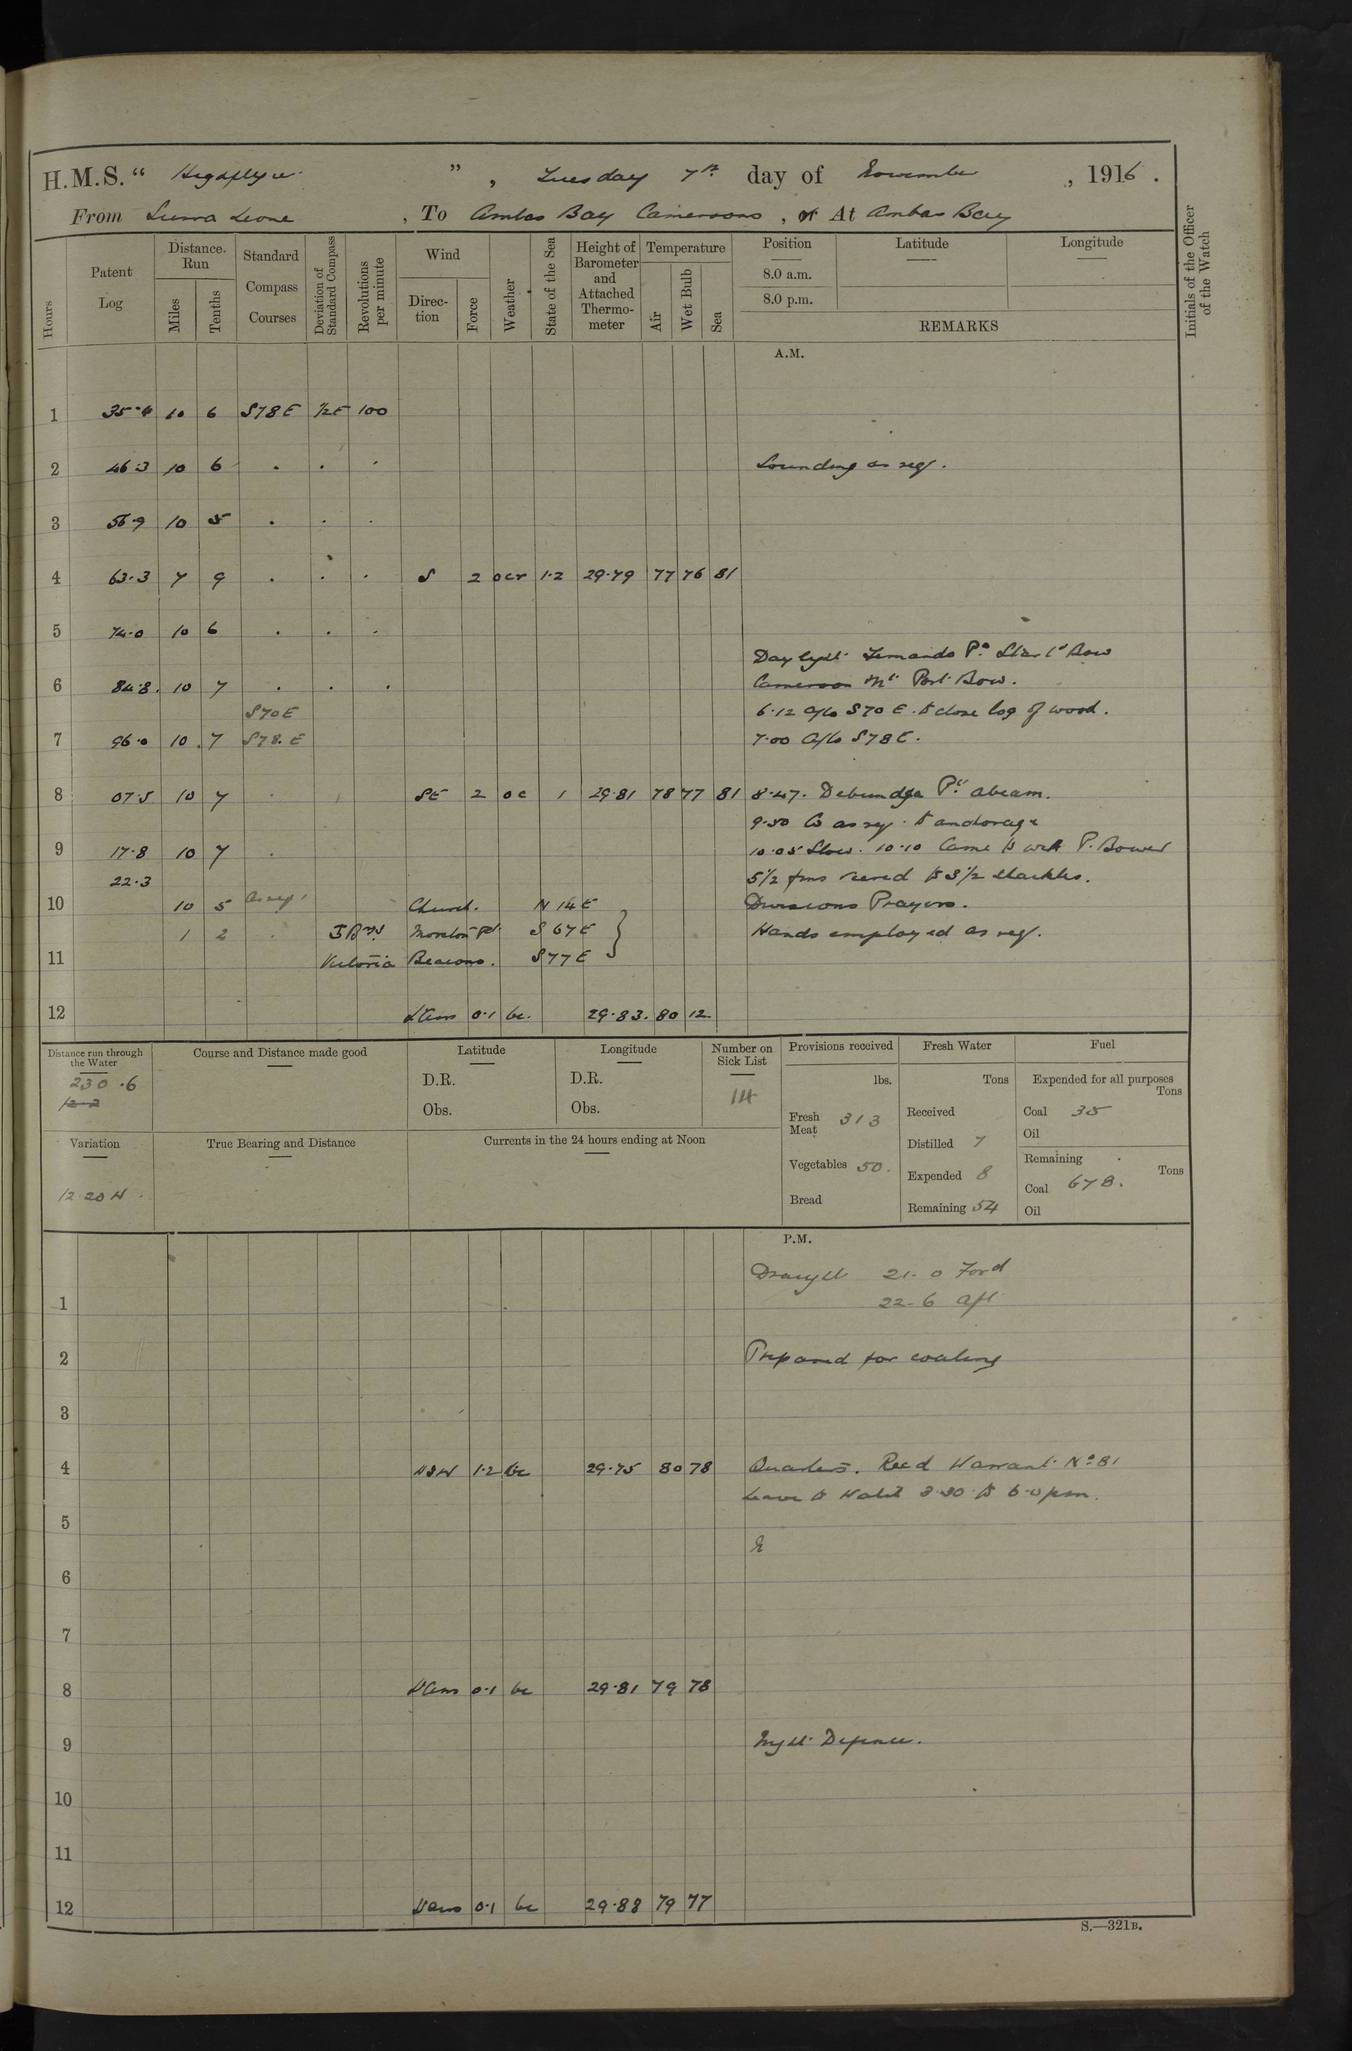 H.M.S. " Highflyer " , Tuesday 7th day of November , 1916 .
From Sierra Leone , To Ambas Bay Cameroons , or At Ambas Bay
Hours
Patent Log
Distance Run
Miles
Tenths
Standard Compass Courses
Deviation of Standard Compass
Revolutions per minute
Wind
Direction
Force
Weather
State of the Sea
Height of Barometer and Attached Thermometer
Temperature
Air
Wet Bulb
Sea
Position
8.0 a.m.
8.0 p.m.
Latitude
Longitude
REMARKS
Initials of the Officer of the Watch
A.M.
1 35.4 10 6 S78E ½E 100
2 46.3 10 6 . . . Sounding as req.
3 56.9 10 5 . . .
4 63.3 7 9 . . . S 2 ocr 1.2 29.79 77 76 81
5 74.0 10 6 . . .
Daylight Fernando Po Starbd Bow
6 84.8. 10 7 . . . Cameroon Mt Port Bow.
S70E 6.12 A/co S70E. to close log of wood.
7 96.0 10. 7 S78.E 7.00 A/co S78E.
8 07.5 10 7 . SE 2 oc 1 29.81 78 77 81 8.47. Debundja Pt abeam.
9.30 Co as req. to anchorage
9 17.8 10 7 . 10.05 Slow. 10.10 Came to with P. Bower
22.3 5½ fms veered to 3½ shackles.
10 10 5 As req. Church. N14E Divisions Prayers.
1 2 . Bgs Morton Pt S67E } Hands employed as req.
11 Victoria Beacons. S77E
12 0.1 bc. 29.83. 80 12
Distance run through the Water
230.6
Course and Distance made good
Latitude
D.R.
Obs.
Longitude
D.R.
Obs.
Number on Sick List
14
Provisions received
lbs.
Fresh Meat 313
Vegetables 50.
Bread
Fresh Water
Tons
Received
Distilled 7
Expended 8
Remaining 54
Fuel
Expended for all purposes
Tons
Coal 35
Oil
Remaining
Tons
Coal 678.
Oil
Variation
12.20W
True Bearing and Distance
Currents in the 24 hours ending at Noon
P.M.
Draught 21.0 Ford
1 22.6 Aft
2 Prepared for coaling
3
4 WSW 1.2 bc 29.75 80 78 Quarters. Read Warrant No 81
Leave to Watch 3.30 to 6.0 pm.
5
6
7
8 0.1 bc 29.81 79 78
9 Night Defence.
10
11
12 0.1 bc 29.88 79 77
S.—321B.